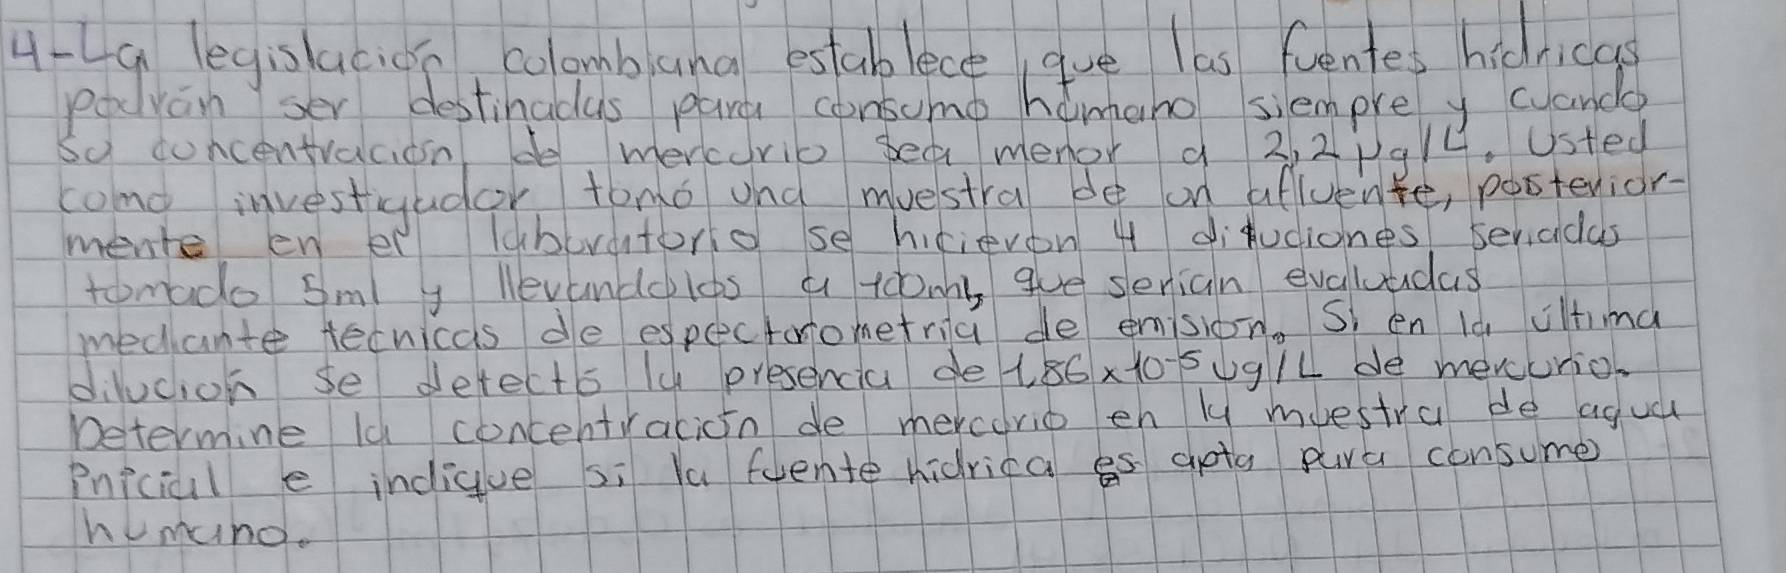 4-La legislación colombiana establece que las fuentes hidricas
podrán ser destinadas para consumo humano siempre y cuando
su concentración de mercurio sea menor a 2,2 µg/L. Usted
como investigador tomó una muestra de un afluente, posterior-
mente en el laboratorio se hicieron 4 diluciones seriadas
tomado 5ml y llevandolos a 100mL que serian evaluadas
mediante tecnicas de espectrometria de emision. Si en la última
dilución se detectó la presencia de 1,86x10-5 ug/L de mercurio.
Determine la concentración de mercurio en la muestra de agua
inicial e indique si la fuente hidrica es apta para consumo
humano.